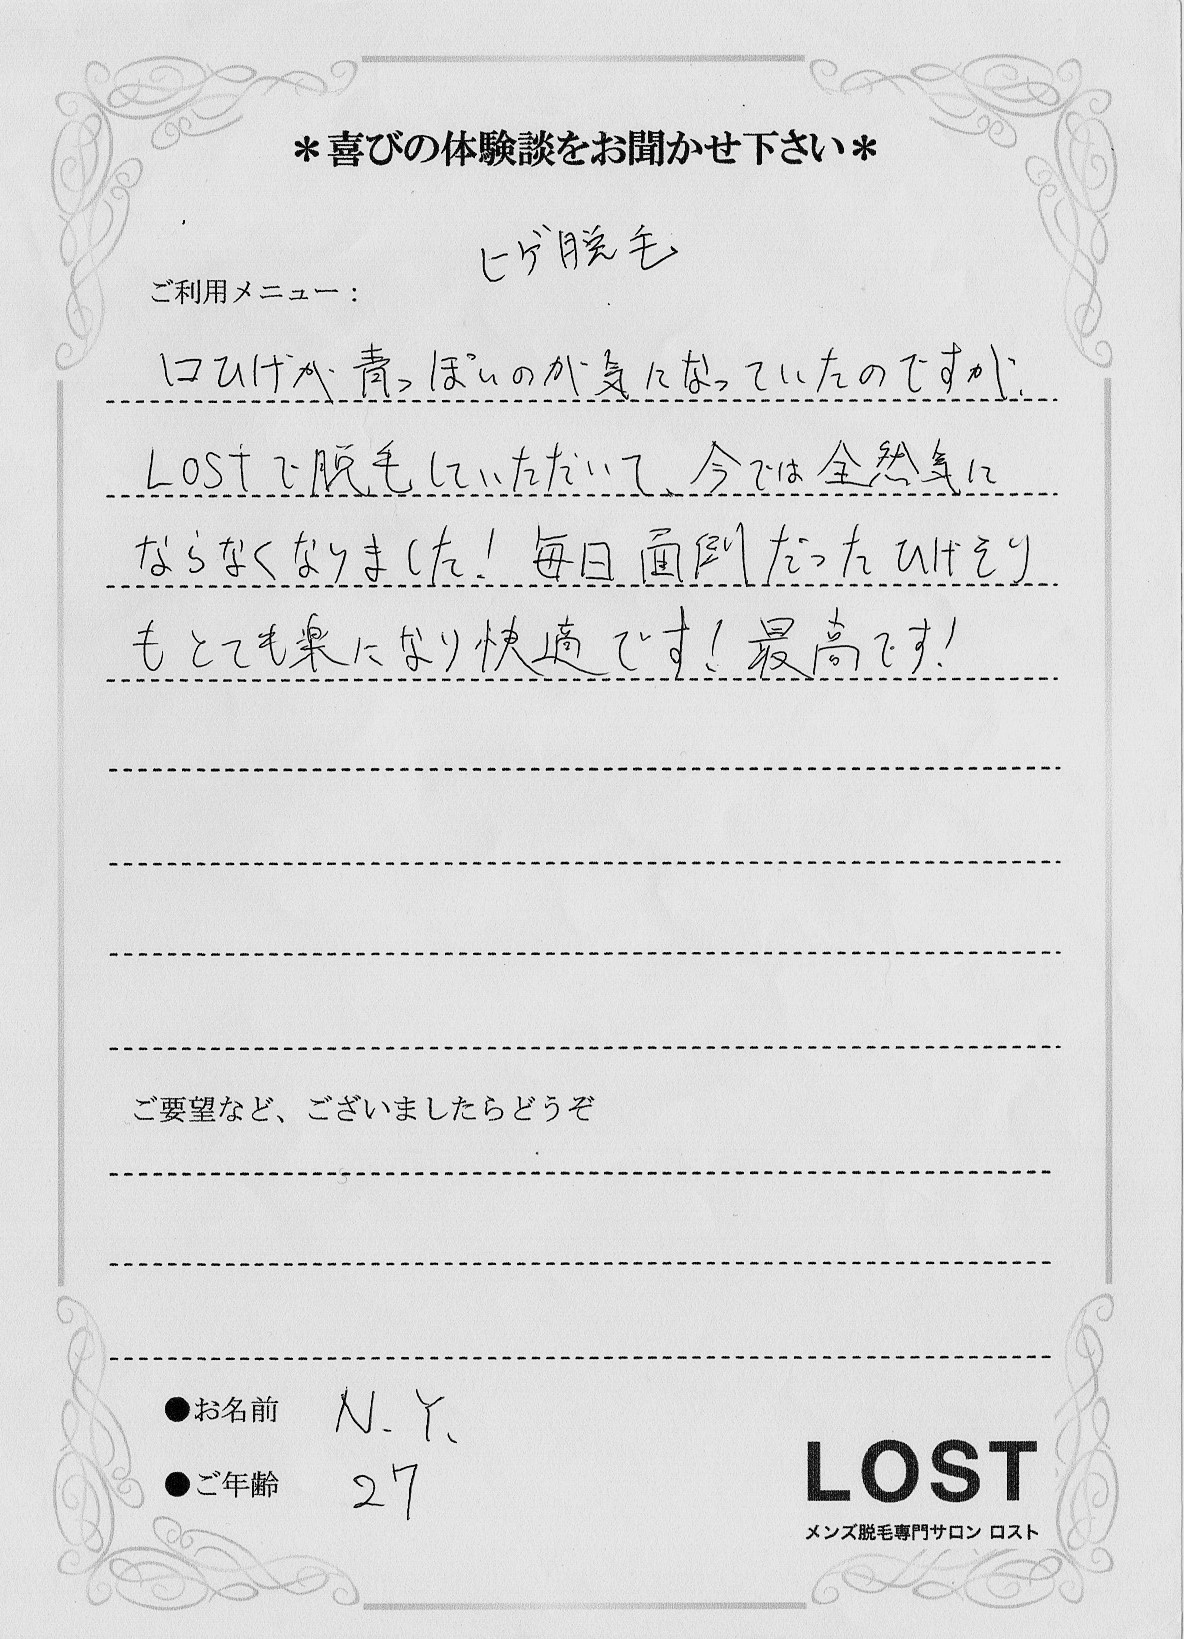 ＊喜びの体験談をお聞かせ下さい＊
ヒゲ脱毛
ご利用メニュー：
口ひげが青っぽいのが気になっていたのですが、
LOSTで脱毛していただいて、今では全然気に
ならなくなりました！毎日面倒だったひげそり
もとても楽になり快適です！最高です！
ご要望など、ございましたらどうぞ
●お名前 N.Y.
●ご年齢 27
LOST
メンズ脱毛専門サロン ロスト